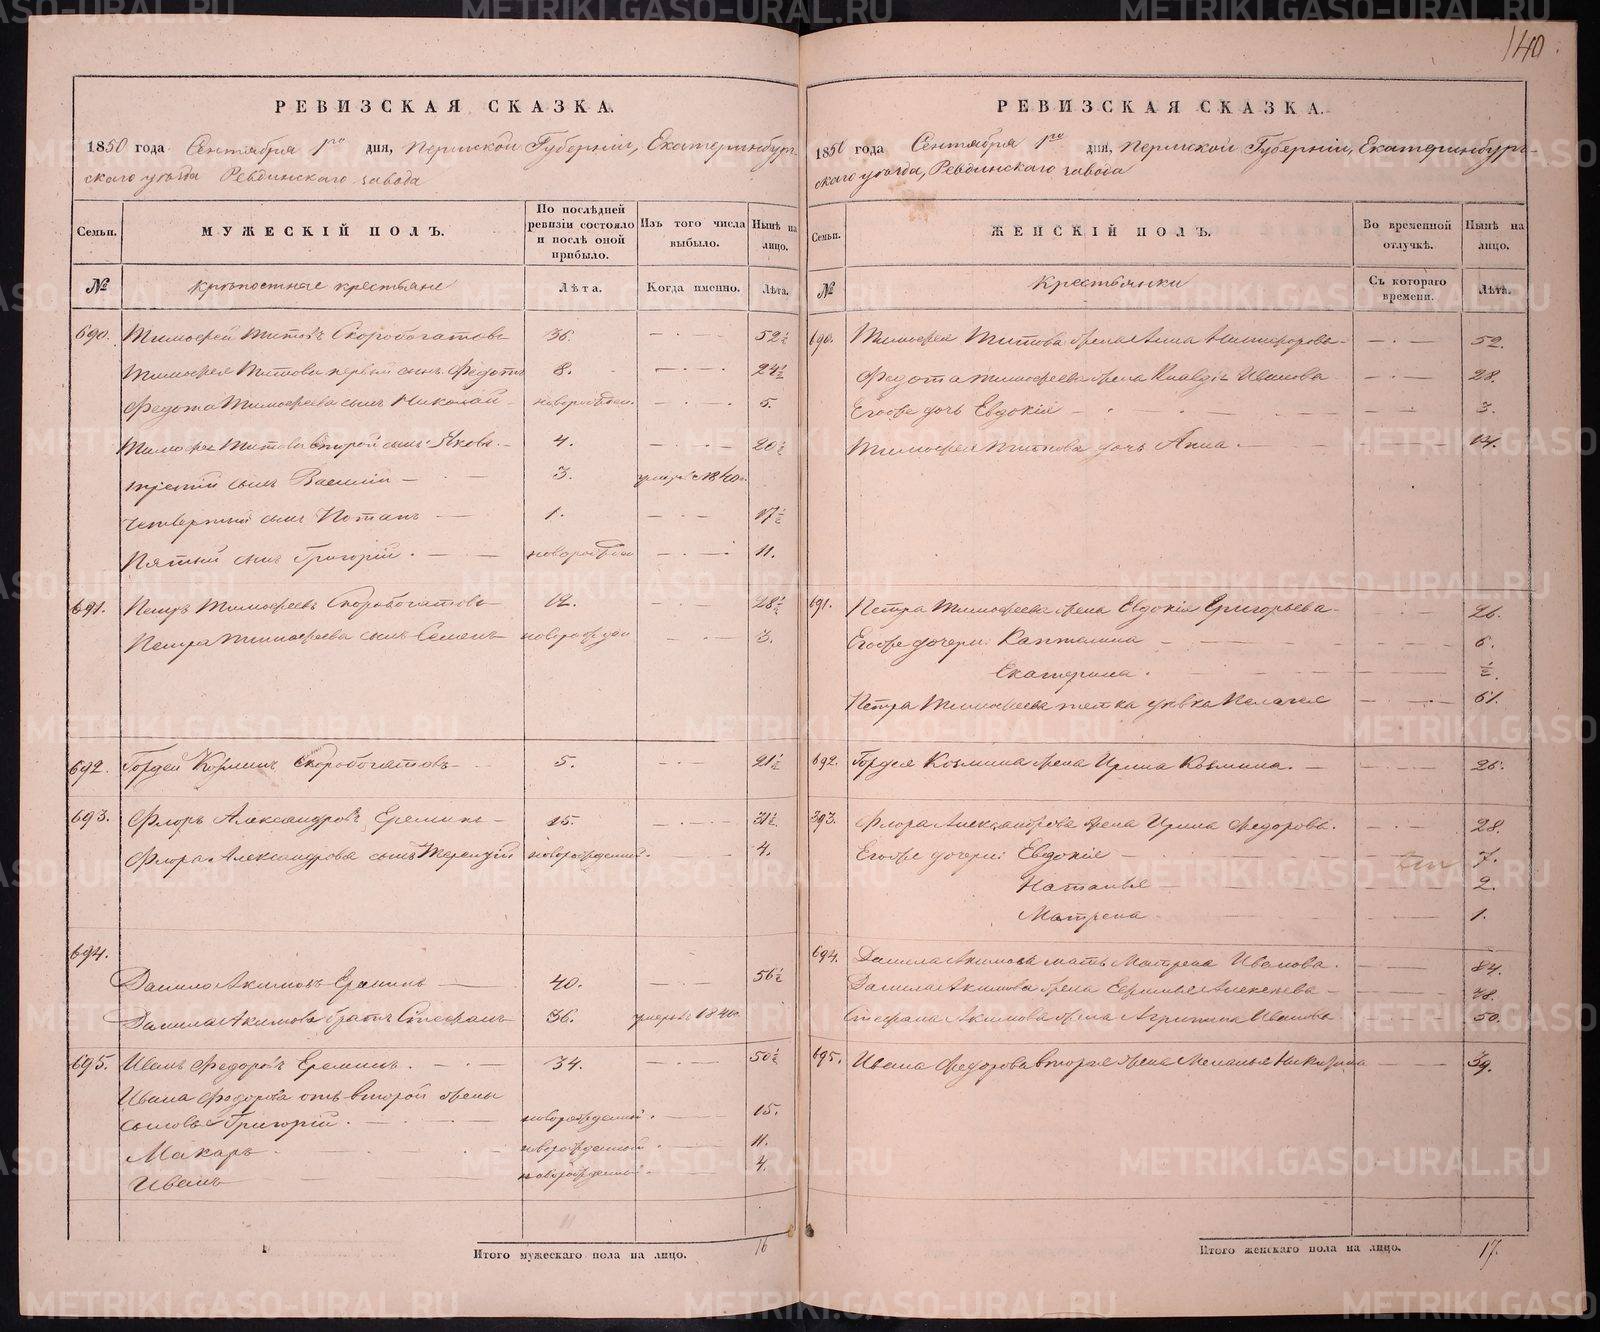 140.
РЕВИЗСКАЯ СКАЗКА.
1850 года Сентября 1го дня, Пермской Губерніи, Екатеринбург-
скаго уѣзда Ревдинскаго завода
Семьи. МУЖЕСКІЙ ПОЛЪ. По послѣдней ревизіи состояло и послѣ оной прибыло. Изъ того числа выбыло. Нынѣ на лицо.
№ Крѣпостные крестьяне Лѣта. Когда именно. Лѣта.
690. Тимофей Титовъ Скоробогатовъ 36. 52½
Тимофея Титова первый сынъ Федотъ 8. 24½
Федота Тимофеева сынъ Николай новорожден. 5.
Тимофея Титова второй сынъ Яковъ 4. 20½
третій сынъ Василій 3. умеръ 1840
четвертый сынъ Потапъ 1. 17½
Пятый сынъ Григорій новорожден 11.
691. Петръ Тимофеевъ Скоробогатовъ 12. 28½
Петра Тимофеева сынъ Семенъ новорожден 3.
692. Гордей Козминъ Скоробогатовъ 5. 21½
693. Флоръ Александровъ Ереминъ 15. 31½
Флора Александрова сынъ Терентій новорожденный 4.
694.
Данило Акимовъ Ереминъ 40. 56½
Данила Акимова братъ Стефанъ 36. умеръ 1840
695. Иванъ Федоровъ Ереминъ 34. 50½
Ивана Федорова отъ второй жены
сыновья Григорій новорожденный 15.
Макаръ новорожденный 11.
Иванъ новорожденный 4.
Итого мужескаго пола на лицо. 16
РЕВИЗСКАЯ СКАЗКА.
1850 года Сентября 1го дня, Пермской Губерніи, Екатеринбург-
скаго уѣзда, Ревдинскаго завода
Семьи. ЖЕНСКІЙ ПОЛЪ. Во временной отлучкѣ. Нынѣ на лицо.
№ Крестьянки Съ котораго времени. Лѣта.
690. Тимофея Титова жена Анна 52.
Федота Тимофеева жена Ивanova 28.
Егоже дочь Евдокія 3.
Тимофея Титова дочь Анна 14.
691. Петра Тимофеева жена Евдокія Григорьева 26.
Егоже дочери: Каптелина 6.
Екатерина ½.
Петра Тимофеева тетка дѣвка Пелагея 61.
692. Гордея Козмина жена Ирина Козмина. 26.
393. Флора Александрова жена Ирина Федорова. 28.
Егоже дочери: Евдокія 7.
Наталья 2.
Матрена 1.
694. Данила Акимова мать Матрена Иванова. 84.
Данила Акимова жена Алексеева
Стефана Акимова жена Агрипина Иванова 50.
695. Ивана Федорова вторая жена Меланья Никитина 39.
Итого женскаго пола на лицо. 17.
METRIKI.GASO-URAL.RU